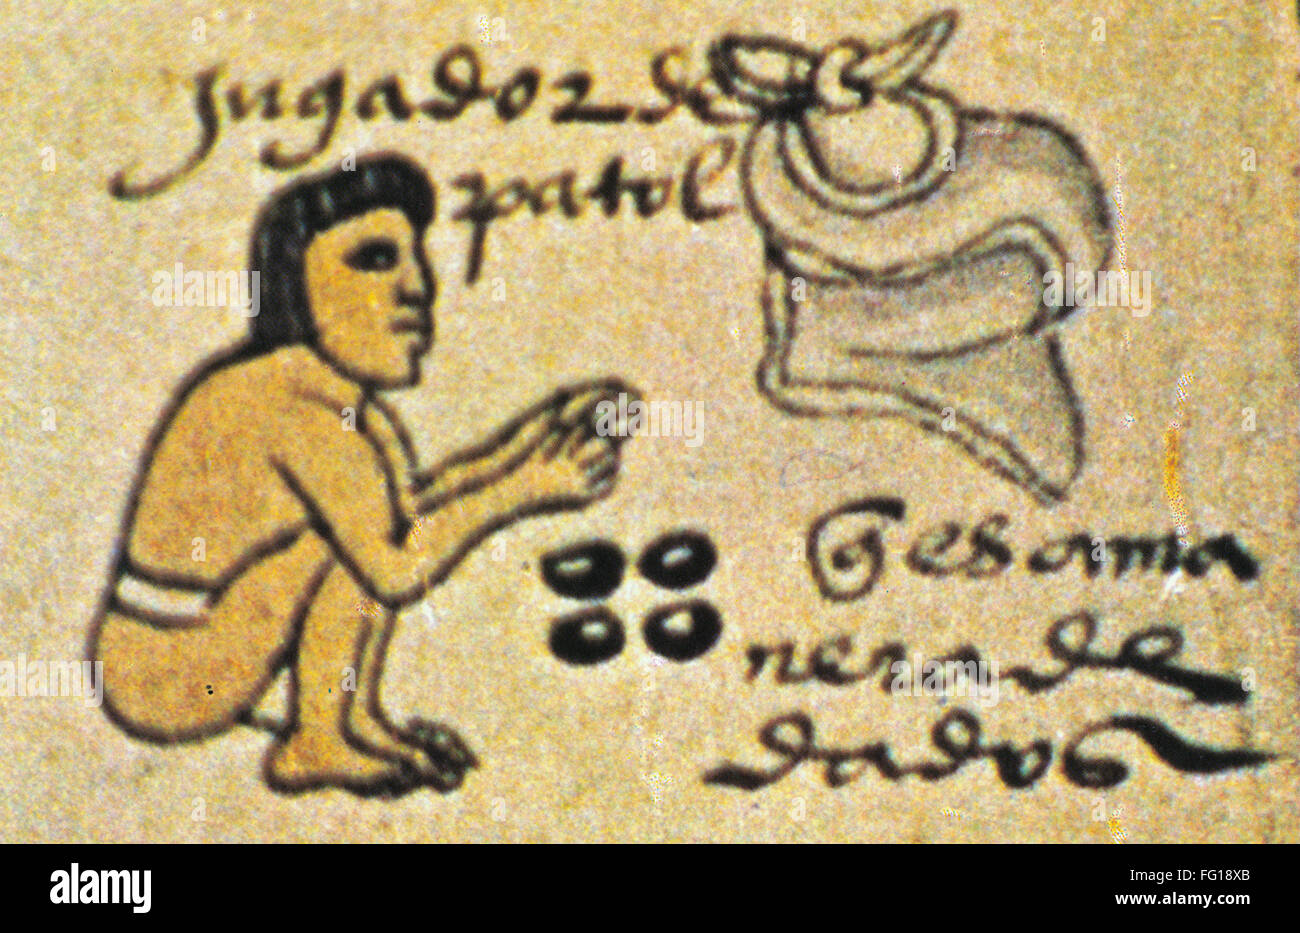 Jugador de
patol
q̃ es ama
nera de
dados
alamy
alamy
Image ID: FG18XB
www.alamy.com